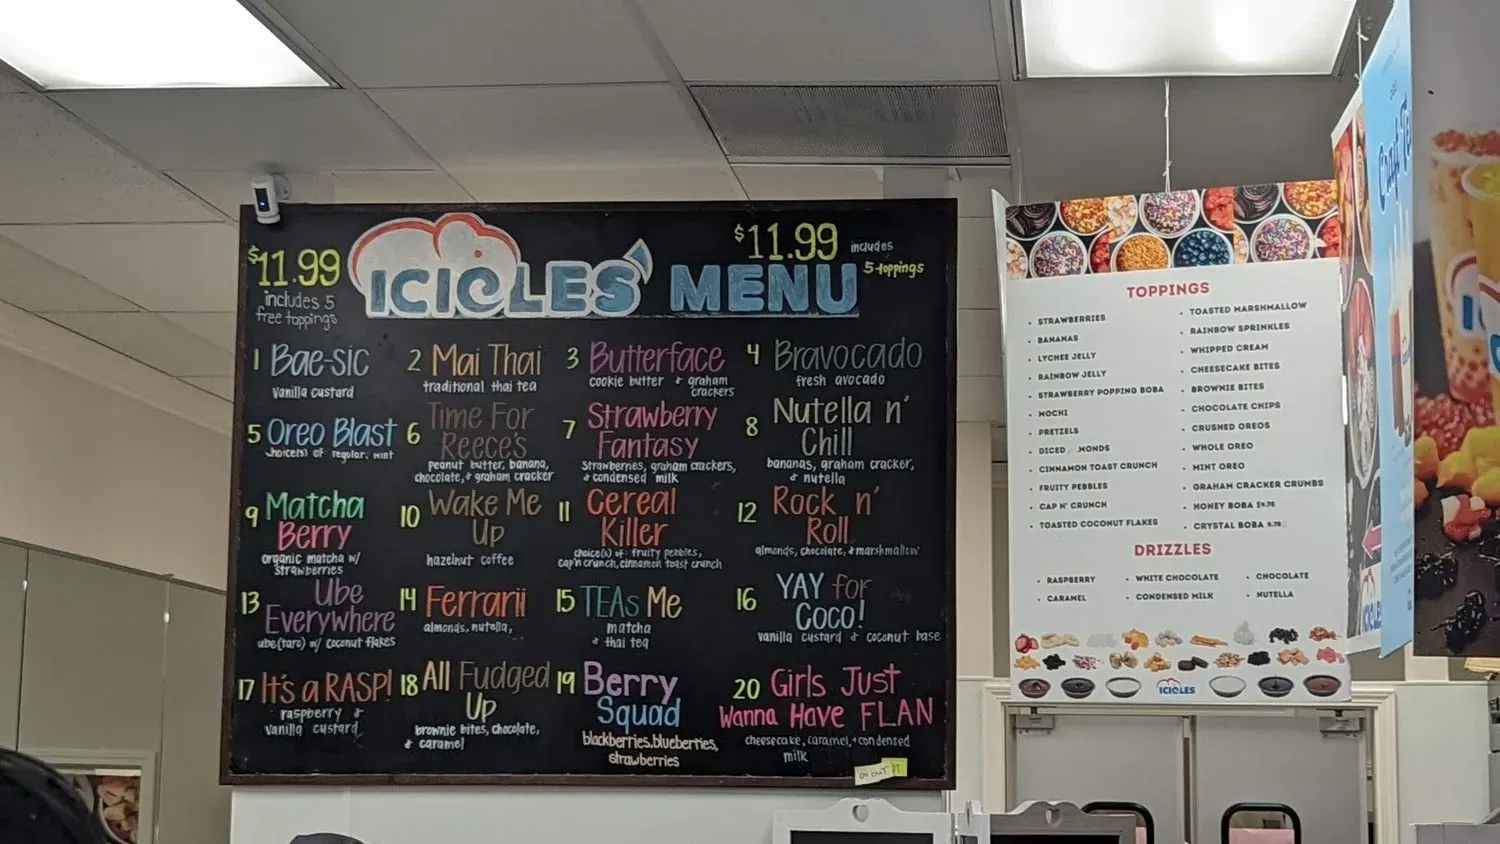 $11.99
includes 5
free toppings
ICICLES' MENU
$11.99 includes
5 toppings
1 Bae-sic
vanilla custard
2 Mai Thai
traditional thai tea
3 Butterface
cookie butter & graham
crackers
4 Bravocado
fresh avocado
5 Oreo Blast
choice(s) of regular, mint
6 Time For
Reece's
peanut butter, banana,
chocolate, & graham cracker
7 Strawberry
Fantasy
strawberries, graham crackers,
& condensed milk
8 Nutella n'
Chill
bananas, graham cracker,
& nutella
9 Matcha
Berry
organic matcha w/
strawberries
10 Wake Me
Up
hazelnut coffee
11 Cereal
Killer
choice(s) of: fruity pebbles,
cap'n crunch, cinnamon toast crunch
12 Rock n'
Roll
almonds, chocolate, & marshmallow
13 Ube
Everywhere
ube (taro) w/ coconut flakes
14 Ferrarii
almonds, nutella,
15 TEAs Me
matcha
& thai tea
16 YAY for
Coco!
vanilla custard & coconut base
17 It's a RASP!
raspberry &
vanilla custard
18 All Fudged
Up
brownie bites, chocolate,
& caramel
19 Berry
Squad
blackberries, blueberries,
strawberries
20 Girls Just
Wanna Have FLAN
cheesecake, caramel, & condensed
milk
TOPPINGS
• STRAWBERRIES
• BANANAS
• LYCHEE JELLY
• RAINBOW JELLY
• STRAWBERRY POPPING BOBA
• MOCHI
• PRETZELS
• DICED MONDS
• CINNAMON TOAST CRUNCH
• FRUITY PEBBLES
• CAP N' CRUNCH
• TOASTED COCONUT FLAKES
• TOASTED MARSHMALLOW
• RAINBOW SPRINKLES
• WHIPPED CREAM
• CHEESECAKE BITES
• BROWNIE BITES
• CHOCOLATE CHIPS
• CRUSHED OREOS
• WHOLE OREO
• MINT OREO
• GRAHAM CRACKER CRUMBS
• HONEY BOBA
• CRYSTAL BOBA
DRIZZLES
• RASPBERRY
• CARAMEL
• WHITE CHOCOLATE
• CONDENSED MILK
• CHOCOLATE
• NUTELLA
ICICLES